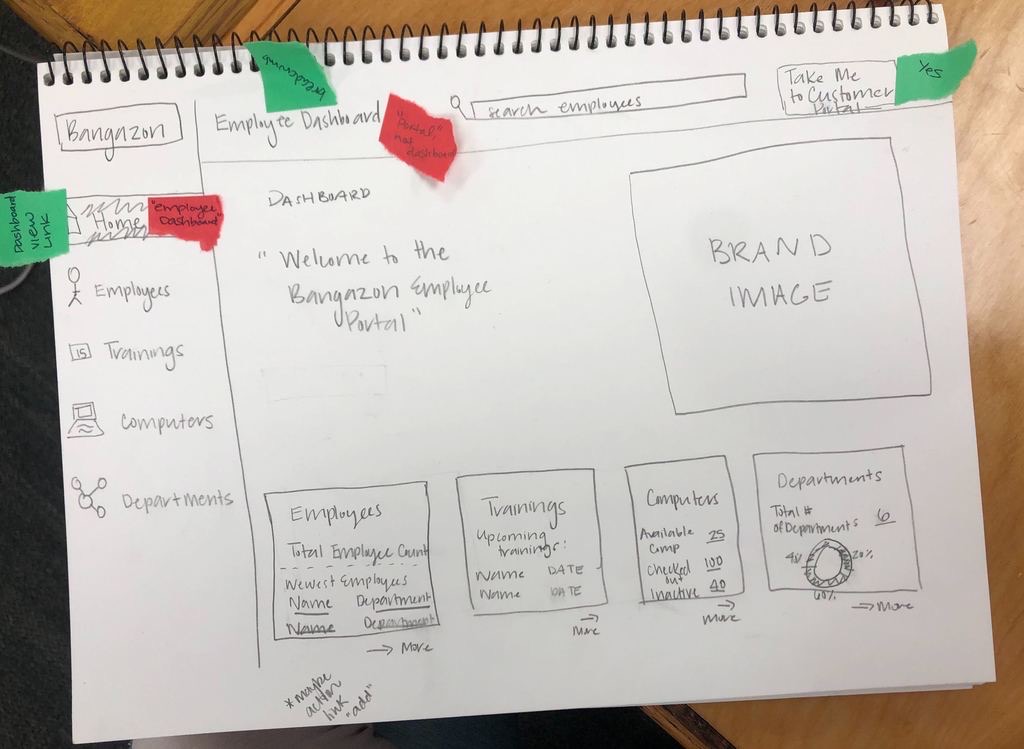 breadcrumb
Yes
Bangazon
Employee Dashboard
"Portal,"
not
dashboard
search employees
Take Me
to Customer
Portal
Dashboard
View
Link
Home
"employee
Dashboard"
Employees
15
Trainings
Computers
Departments
DASHBOARD
"Welcome to the
Bangazon Employee
Portal"
BRAND
IMAGE
Employees
Total Employee Count
Newest Employees
Name Department
Name Department
→ More
Trainings
Upcoming
trainings:
Name DATE
Name DATE
→
More
Computers
Available 25
Comp
Checked 100
out
Inactive 40
→
More
Departments
Total #
of Departments 6
20%
60%
→ More
*maybe
action
link
"add"